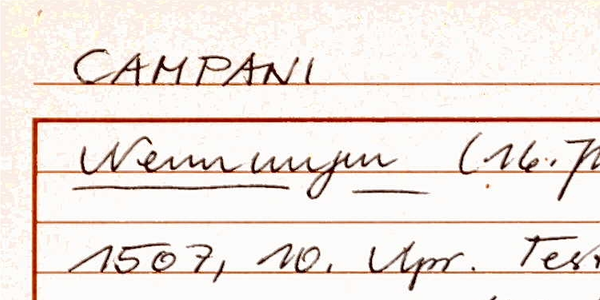 CAMPANI
Nennungen (16. Jh
1507, 10. Apr. Test